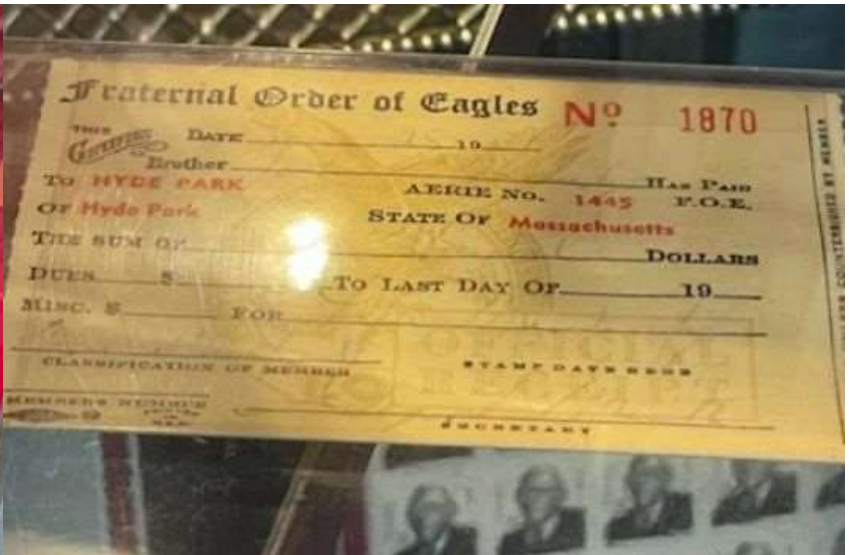 Fraternal Order of Eagles Nº 1870
THIS CERTIFIES DATE 19
Brother HAS PAID
TO HYDE PARK AERIE NO. 1445 F.O.E.
OF Hyde Park STATE OF Massachusetts
THE SUM OF DOLLARS
DUES $ TO LAST DAY OF 19
MISC. $ FOR
OFFICIAL
RECEIPT
CLASSIFICATION OF MEMBER STAMP DATE HERE
MEMBERS NUMBER
SECRETARY
COUNTERSIGNED BY MEMBER